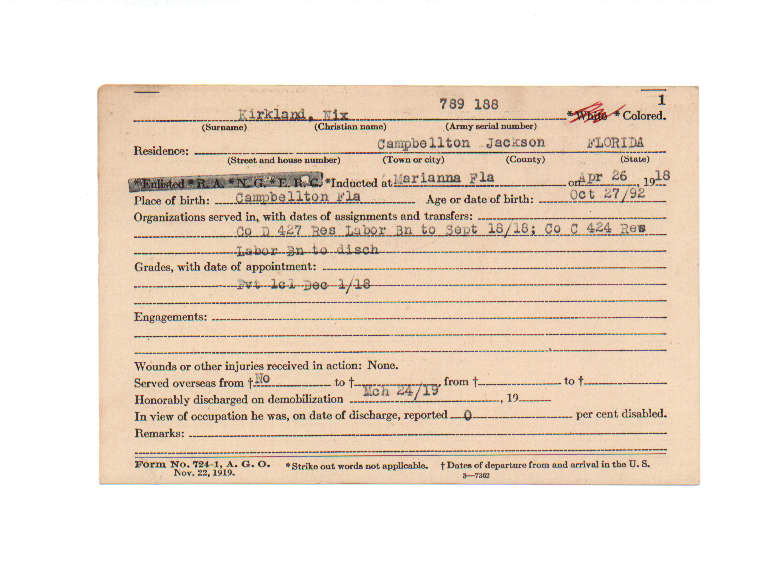 789 188 1
Kirkland, Nix *White *Colored.
(Surname) (Christian name) (Army serial number)
Campbellton Jackson FLORIDA
Residence:
(Street and house number) (Town or city) (County) (State)
*Enlisted *R. A. *N. G. *E. R. C. *Inducted at Marianna Fla on Apr 26, 1918
Place of birth: Campbellton Fla Age or date of birth: Oct 27/92
Organizations served in, with dates of assignments and transfers:
Co D 427 Res Labor Bn to Sept 18/18; Co C 424 Res
Labor Bn to disch
Grades, with date of appointment:
Pvt 1cl Dec 1/18
Engagements:
Wounds or other injuries received in action: None.
Served overseas from † No to † , from † to †
Honorably discharged on demobilization Mch 24/19 , 19
In view of occupation he was, on date of discharge, reported 0 per cent disabled.
Remarks:
Form No. 724-1, A. G. O. *Strike out words not applicable. † Dates of departure from and arrival in the U. S.
Nov. 22, 1919. 3—7362